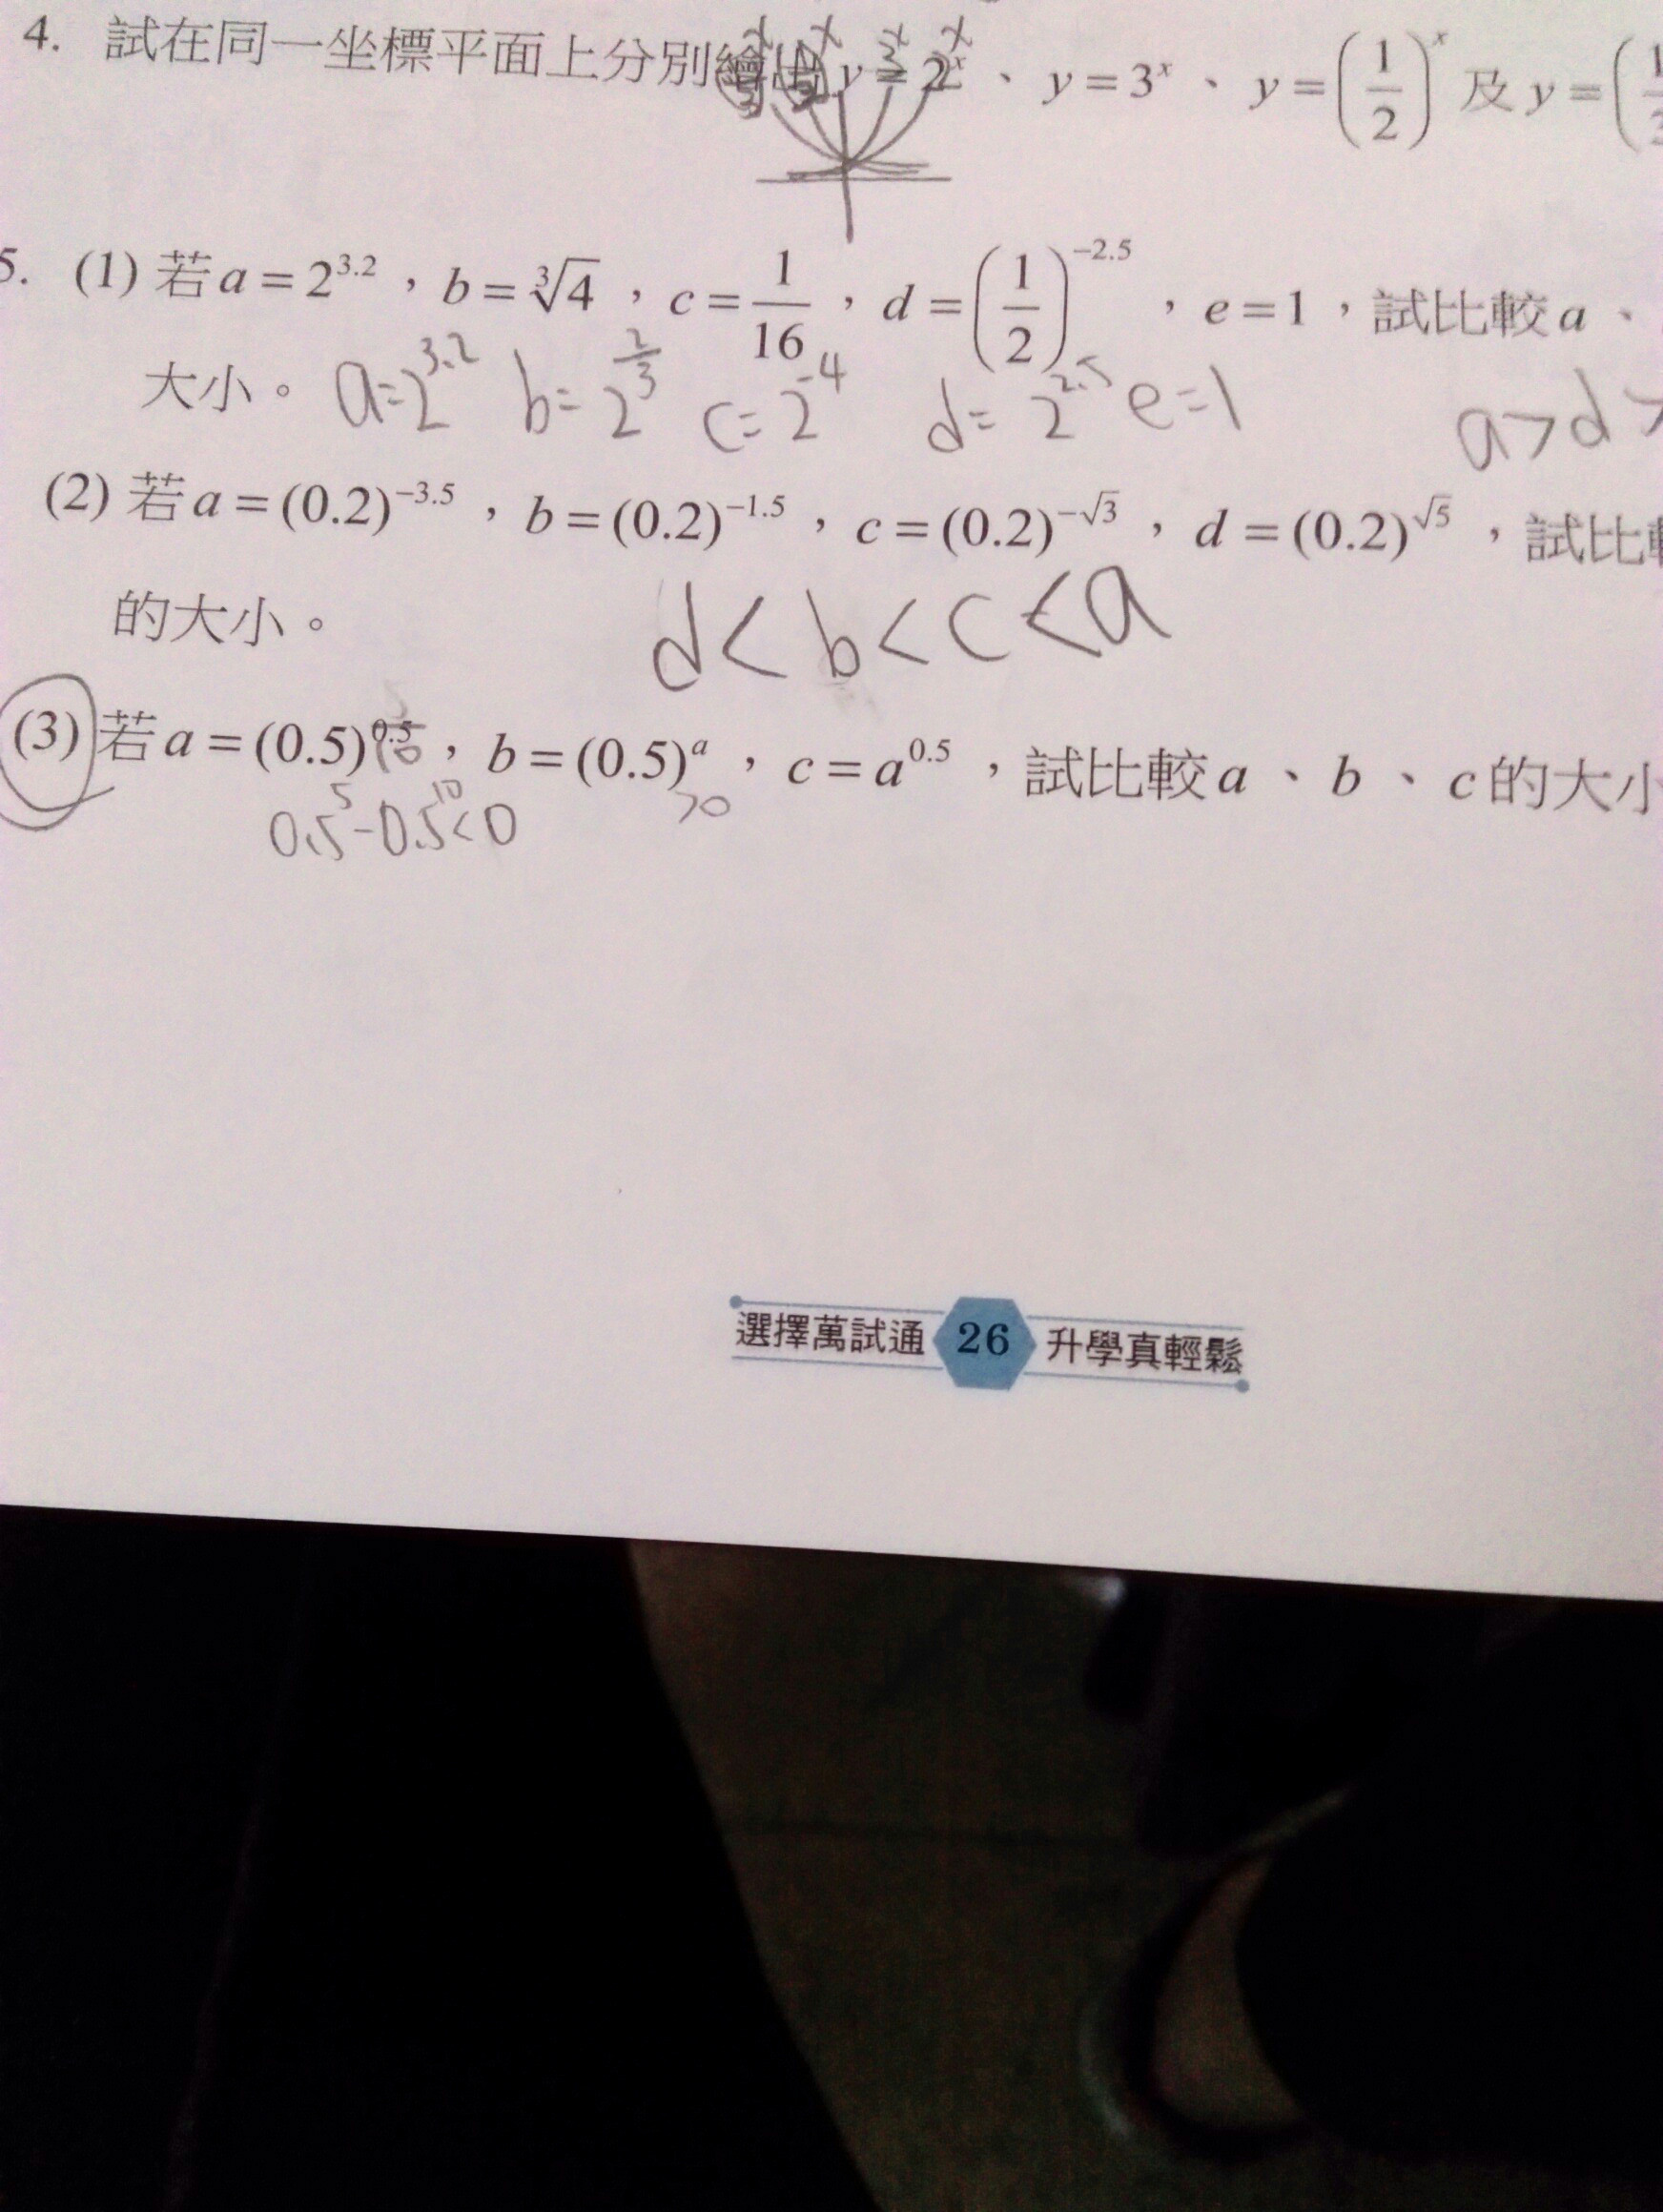 4. 試在同一坐標平面上分別繪出 y = 2^x 、 y = 3^x 、 y = (1/2)^x 及 y = (1
5. (1) 若 a = 2^{3.2} , b = ∛4 , c = 1/16 , d = (1/2)^{-2.5} , e = 1 , 試比較 a 、
大小。 a=2^{3.2} b=2^{2/3} c=2^{-4} d=2^{2.5} e=1 a>d>
(2) 若 a = (0.2)^{-3.5} , b = (0.2)^{-1.5} , c = (0.2)^{-√3} , d = (0.2)^{√5} , 試比較
的大小。 d<b<c<a
(3) 若 a = (0.5)^{0.5} , b = (0.5)^a , c = a^{0.5} , 試比較 a 、 b 、 c 的大小
0.5^5-0.5^{10}<0 >0
選擇萬試通 26 升學真輕鬆